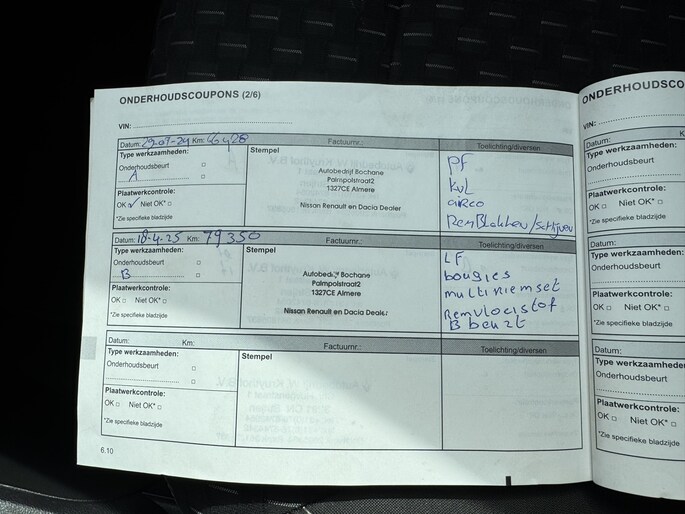 ONDERHOUDSCOUPONS (2/6)
ONDERHOUDSCO
VIN:
Datum: 29-07-24 Km: Factuurnr.: Toelichting/diversen
Type werkzaamheden:
Onderhoudsbeurt
A
Plaatwerkcontrole:
OK Niet OK*
*Zie specifieke bladzijde
Stempel
Autobedrijf Bochane
Palmpolstraat2
1327CE Almere
Nissan Renault en Dacia Dealer
pf
kvl
airco
Remblokken/schijven
Datum: 18-4-25 Km: 79350 Factuurnr.: Toelichting/diversen
Type werkzaamheden:
Onderhoudsbeurt
B
Plaatwerkcontrole:
OK Niet OK*
*Zie specifieke bladzijde
Stempel
Autobedrijf Bochane
Palmpolstraat2
1327CE Almere
Nissan Renault en Dacia Dealer
LF
bougies
multiriemset
Remvloeistof
B beurt
Datum: Km: Factuurnr.: Toelichting/diversen
Type werkzaamheden:
Onderhoudsbeurt
Plaatwerkcontrole:
OK Niet OK*
*Zie specifieke bladzijde
Stempel
6.10
VIN:
Datum: K
Type werkzaamheden:
Onderhoudsbeurt
Plaatwerkcontrole:
OK Niet OK*
*Zie specifieke bladzijde
Datum:
Type werkzaamheden:
Onderhoudsbeurt
Plaatwerkcontrole:
OK Niet OK*
*Zie specifieke bladzijde
Datum:
Type werkzaamheden:
Onderhoudsbeurt
Plaatwerkcontrole:
OK Niet OK*
*Zie specifieke bladzijde